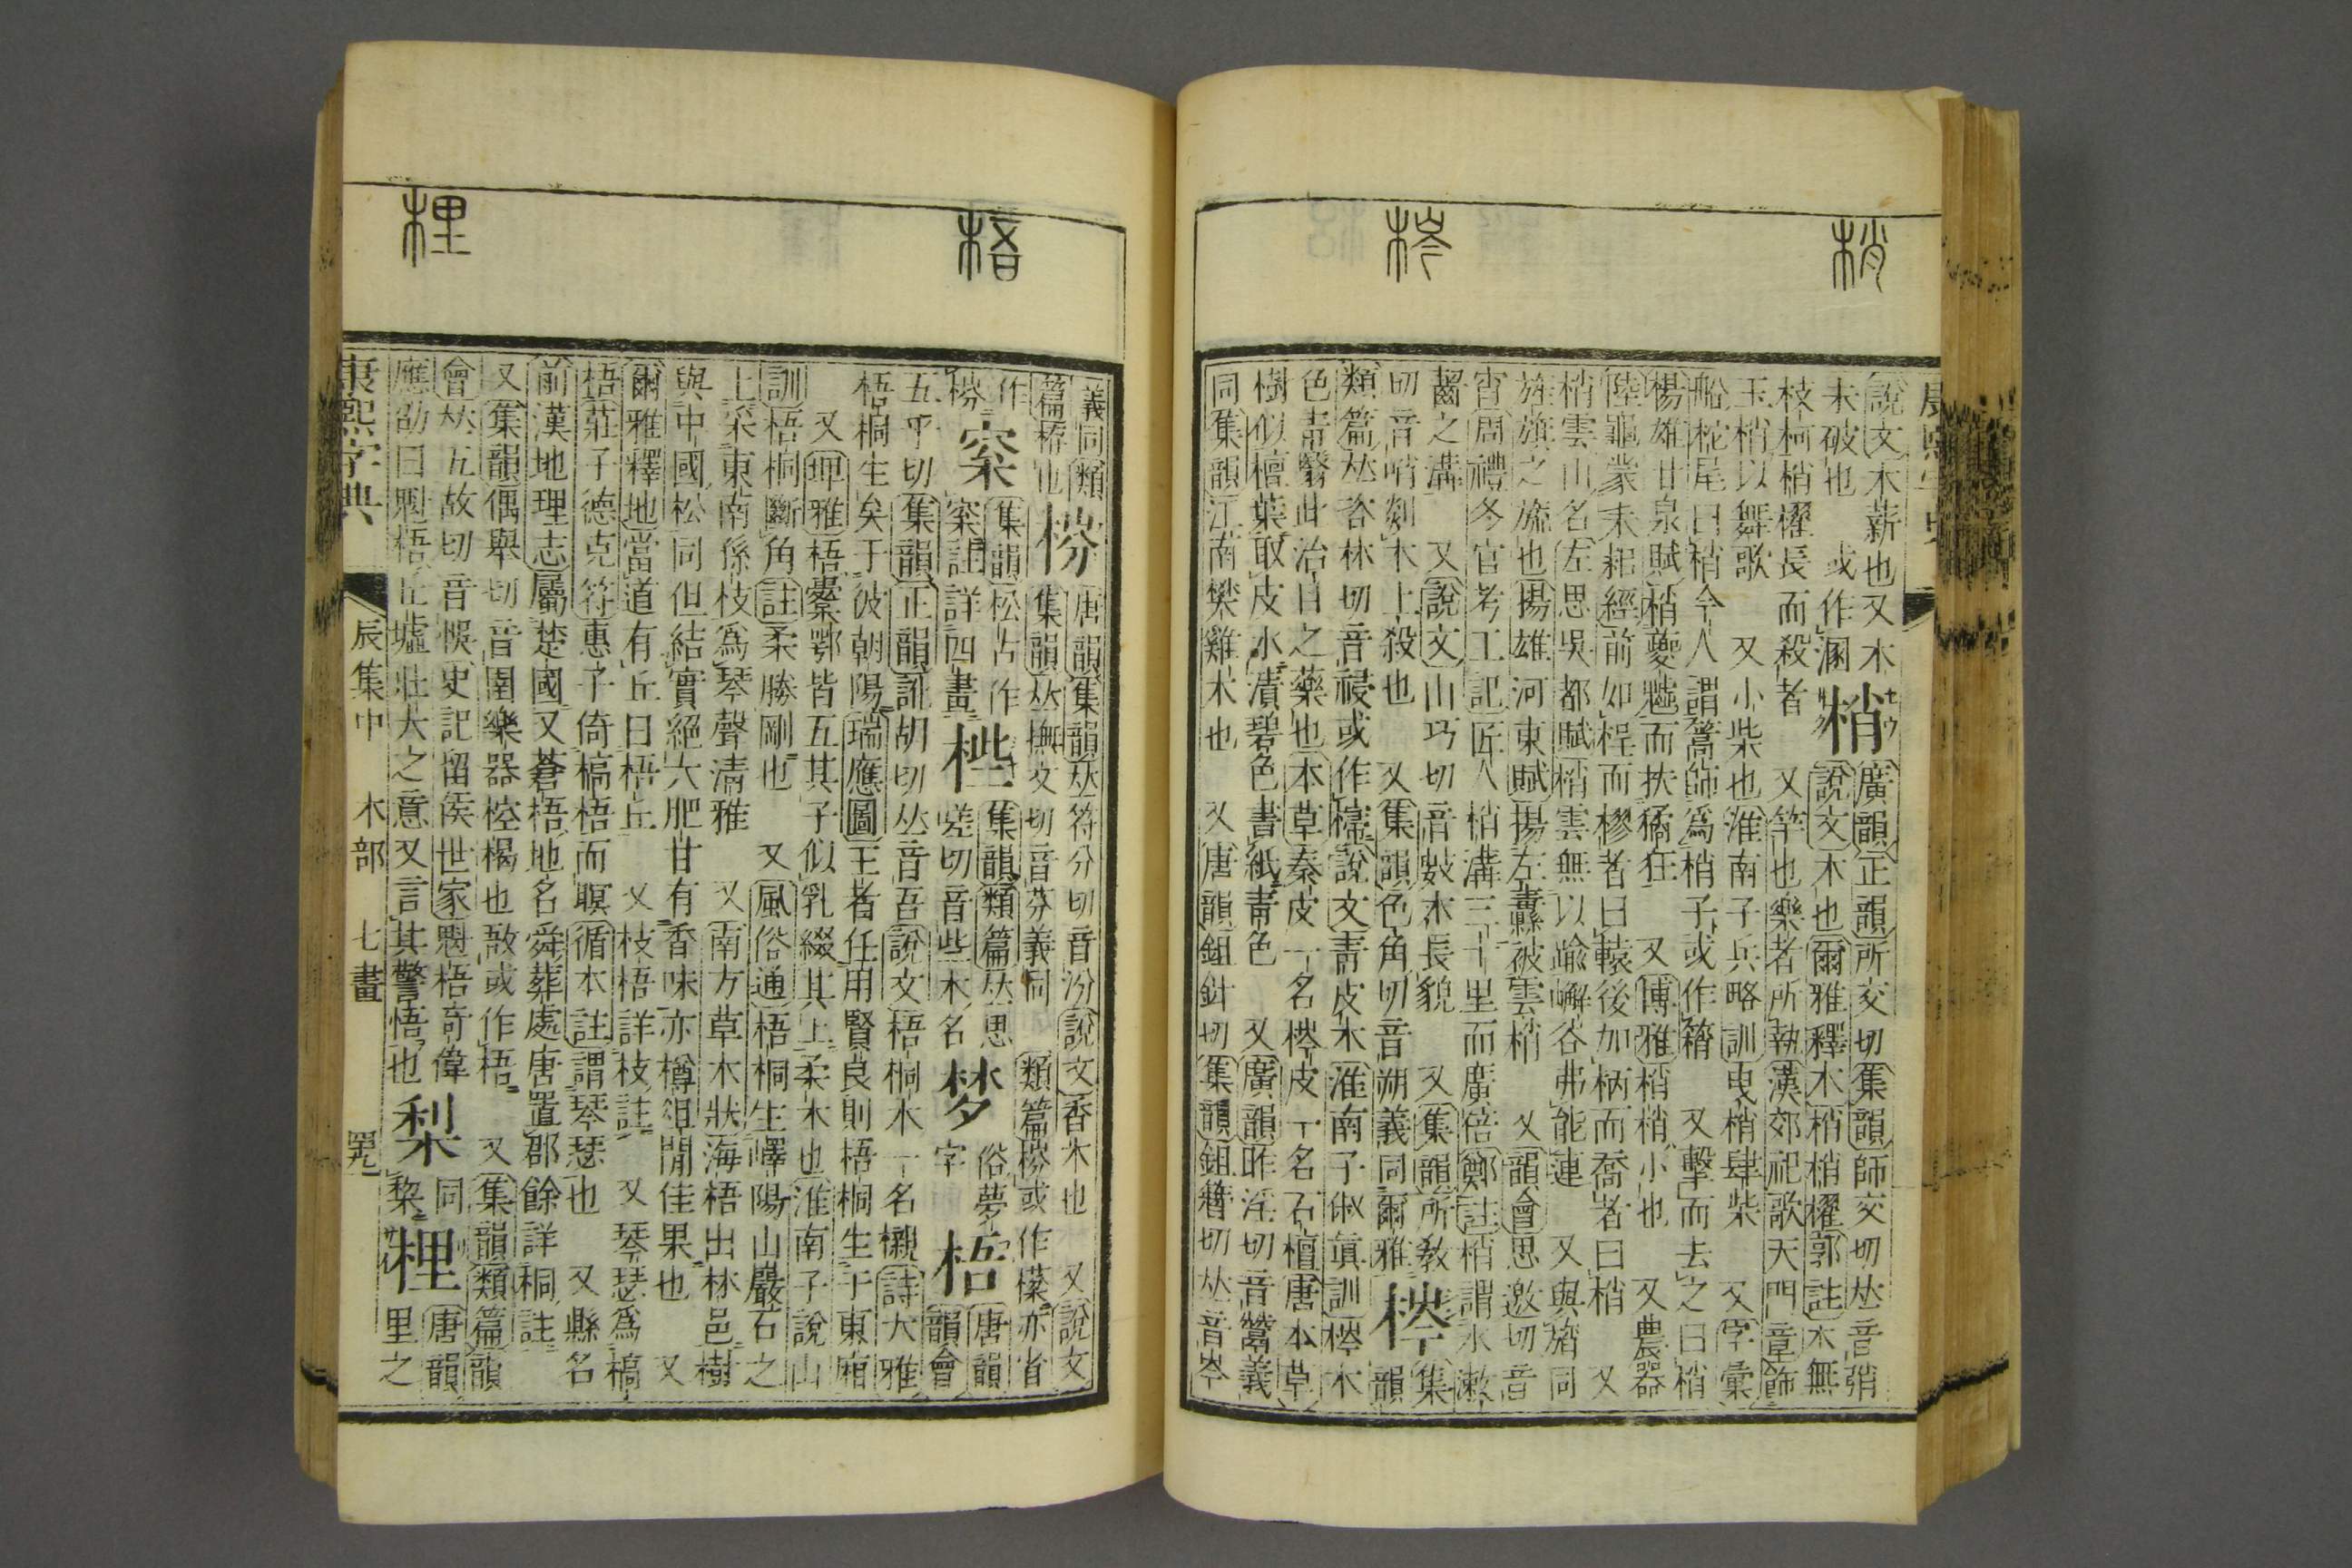 梢
梣
說文木薪也又木
未破也　或作溷
梢
廣韻正韻所交切集韻師交切𠀤音弰
說文木也爾雅釋木梢梢櫂郭註木無
枝柯梢櫂長而殺者　又竿也樂者所執漢郊祀歌天門章飾
玉梢以舞歌　又小柴也淮南子兵略訓曳梢肆柴　又字彙
船柁尾曰梢今人謂篙師爲梢子或作䈾　又擊而去之曰梢
楊雄甘泉賦梢夔魖而抶獝狂　又博雅梢梢小也　又農器
陸龜蒙耒耜經前如桯而樛者曰轅後加柄而喬者曰梢　又
梢雲山名左思吳都賦梢雲無以踰嶰谷弗能連　又與旓同
旌旗之旒也揚雄河東賦揚左纛被雲梢　又韻會思邀切音
宵周禮冬官考工記匠人梢溝三十里而廣倍鄭註梢謂水漱
齧之溝　又說文山巧切音數木長貌　又集韻所敎
切音哨剡木上殺也　又集韻色角切音朔義同爾雅
梣
集韻
類篇𠀤咨林切音祲或作㰊說文靑皮木淮南子俶眞訓梣木
色靑翳此治目之藥也本草秦皮一名梣皮一名石檀唐本草
樹似檀葉取皮水漬碧色書紙靑色　又廣韻昨淫切音鬵義
同集韻江南樊雞木也　又唐韻鉏針切集韻鉏簪切𠀤音岑
梧
梩
義同類
篇桥也
梤
唐韻集韻𠀤符分切音汾說文香木也　又說文
集韻𠀤撫文切音芬義同　類篇梤或作橃亦省
作
梤
㮤
集韻松古作
㮤註詳四畫
桬
集韻類篇𠀤思
嗟切音些木名
梦
俗夢
字
梧
唐韻
韻會
五乎切集韻正韻訛胡切𠀤音吾說文梧桐木一名櫬詩大雅
梧桐生矣于彼朝陽瑞應圖王者任用賢良則梧桐生于東廂
又埤雅梧櫜鄂皆五其子似乳綴其上柔木也淮南子說山
訓梧桐斷角註柔勝剛也　又風俗通梧桐生嶧陽山巖石之
上采東南係枝爲琴聲淸雅　又南方草木狀海梧出林邑樹
與中國松同但結實絕大肥甘有香味亦樽俎閒佳果也　又
爾雅釋地當道有丘曰梧丘　又枝梧詳枝註　又琴瑟爲槁
梧莊子德克符惠子倚槁梧而瞑循本註謂琴瑟也　又縣名
前漢地理志屬楚國又蒼梧地名舜葬處唐置郡餘詳桐註
又集韻偶舉切音圉樂器椌楬也敔或作梧　又集韻類篇韻
會𠀤五故切音悞史記留侯世家魁梧奇偉
應劭曰魁梧丘墟壯大之意又言其警悟也
梸
同
棃
梩
唐韻
里之
康熙字典
辰集中　木部　七畫
罢九